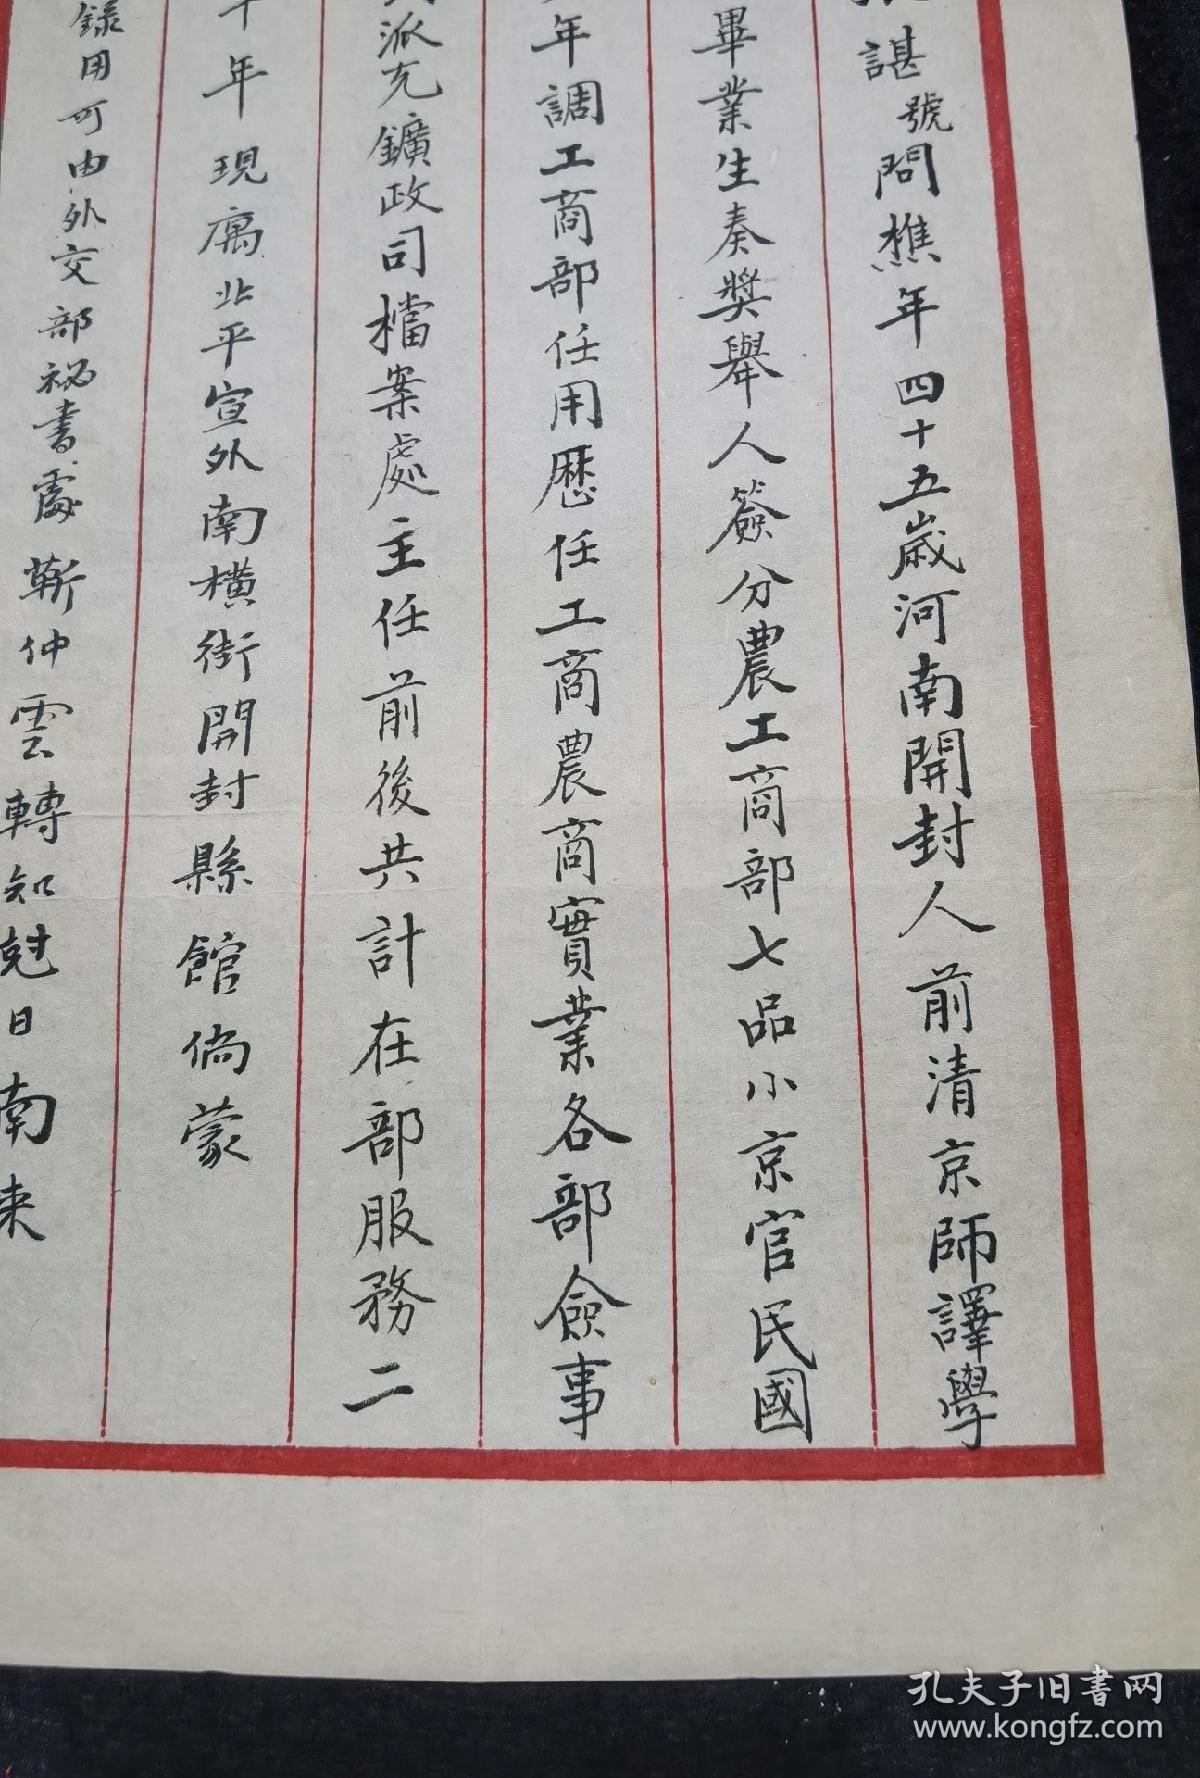 諶號問樵年四十五歲河南開封人前清京師譯學
畢業生奏獎舉人簽分農工商部七品小京官民國
年調工商部任用歷任工商農商實業各部僉事
派充鑛政司檔案處主任前後共計在部服務二
十年現寓北平宣外南橫街開封縣館倘蒙
錄用可由外交部祕書處靳仲雲轉知尅日南來
孔夫子旧书网
www.kongfz.com